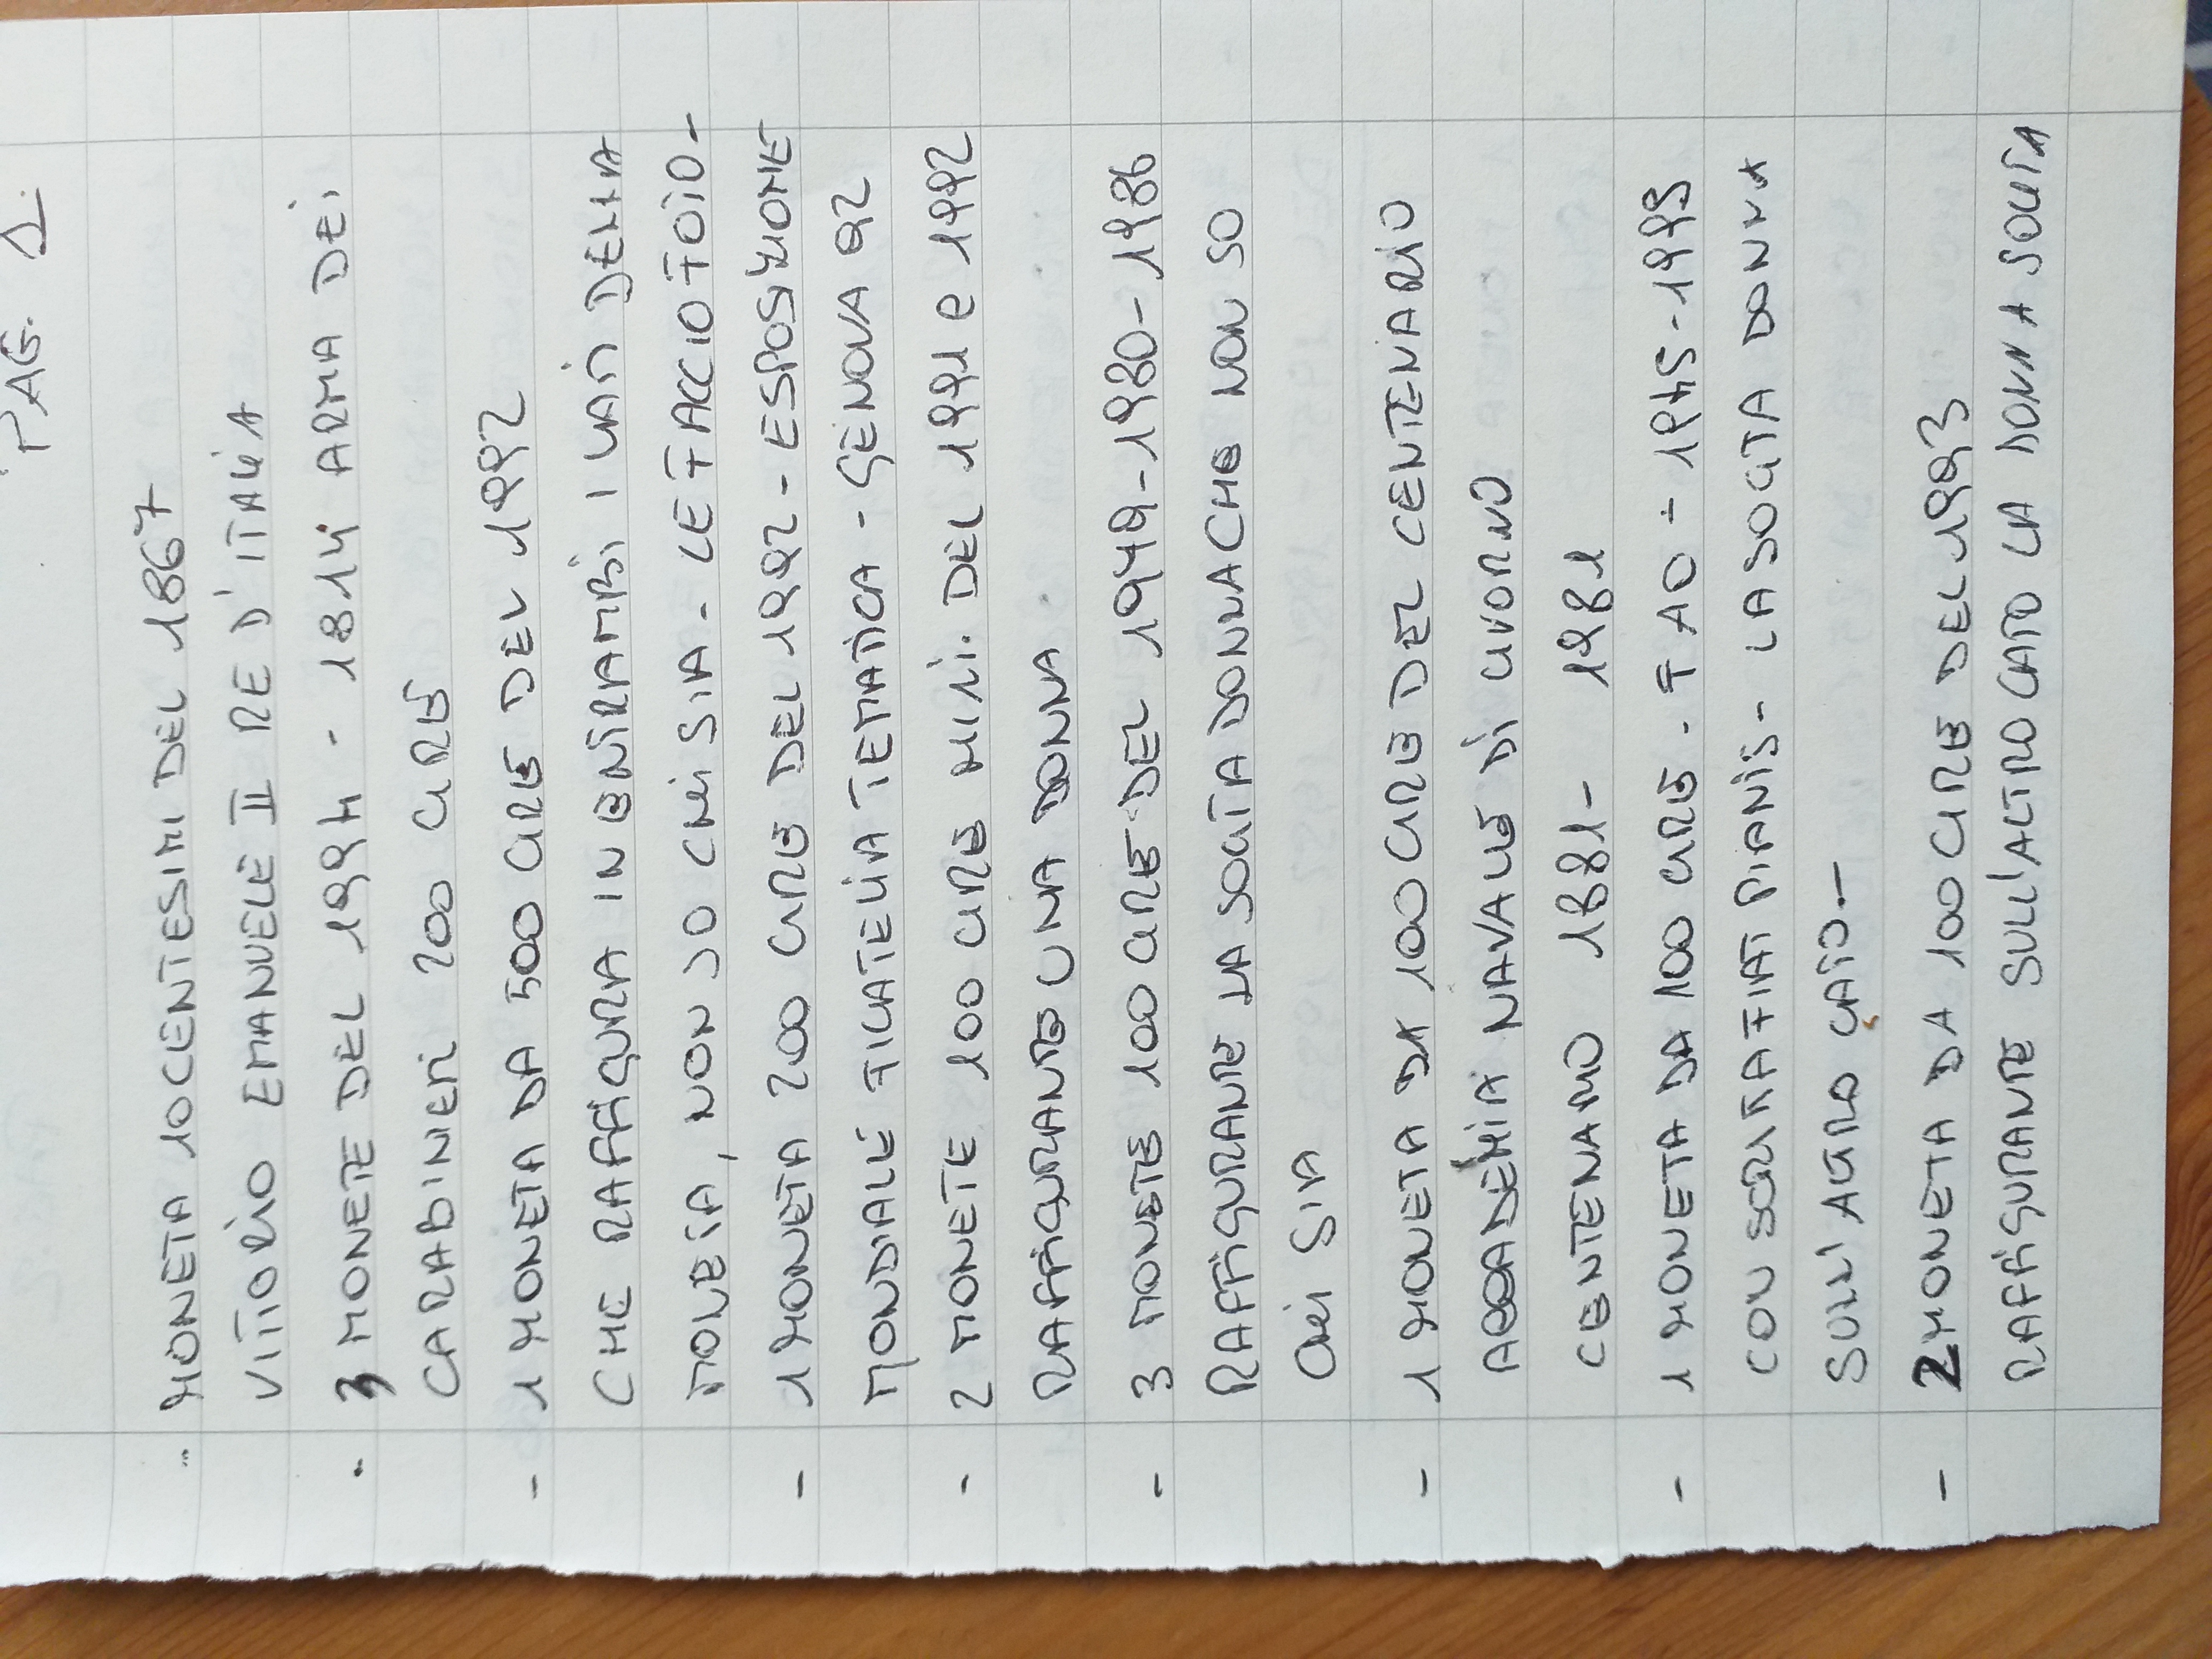 PAG. 1.
- MONETA 10 CENTESIMI DEL 1867
VITTORIO EMANUELE II RE D'ITALIA
- 3 MONETE DEL 1994 - 1814 ARMA DEI
CARABINIERI 200 LIRE
- 1 MONETA DA 500 LIRE DEL 1992
CHE RAFFIGURA IN ENTRAMBI I LATI DELLA
MONETA, NON SO CHI SIA - LE FACCIO FOTO -
- 1 MONETA 200 LIRE DEL 1992 - ESPOSIZIONE
MONDIALE FILATELIA TEMATICA - GENOVA 92
- 2 MONETE 100 LIRE MINI. DEL 1991 e 1992
RAFFIGURANTE UNA DONNA
- 3 MONETE 100 LIRE DEL 1949-1980-1986
RAFFIGURANTE LA SOLITA DONNA CHE NON SO
CHI SIA
- 1 MONETA DA 100 LIRE DEL CENTENARIO
ACCADEMIA NAVALE DI LIVORNO
CENTENARIO 1881 - 1981
- 1 MONETA DA 100 LIRE. FAO - 1945-1995
CON SCRITTA FIAT PIANIS - LA SOLITA DONNA
SULL'ALTRO LATO -
- 2 MONETA DA 100 LIRE DEL 1993
RAFFIGURANTE SULL'ALTRO LATO LA DONNA SOLITA